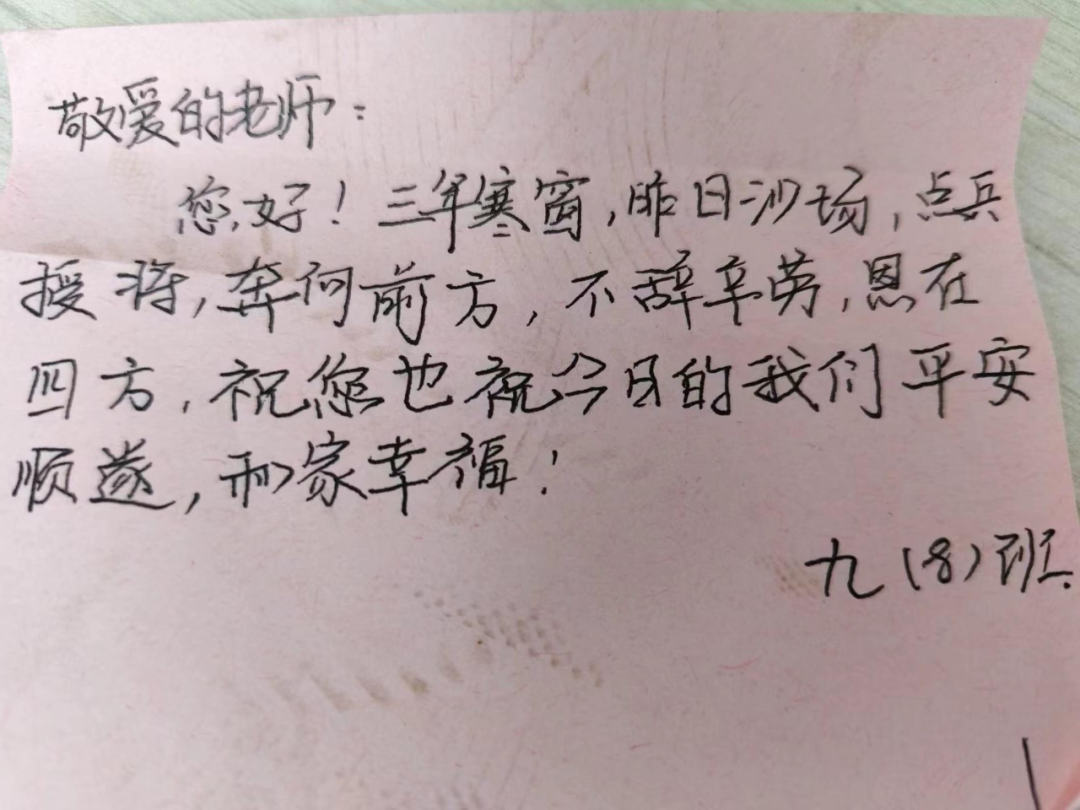 敬爱的老师：
您好！三年寒窗，昨日沙场，点兵
授将，奔向前方，不辞辛劳，恩在
四方，祝您也祝今日的我们平安
顺遂，和家幸福！
九（8）班